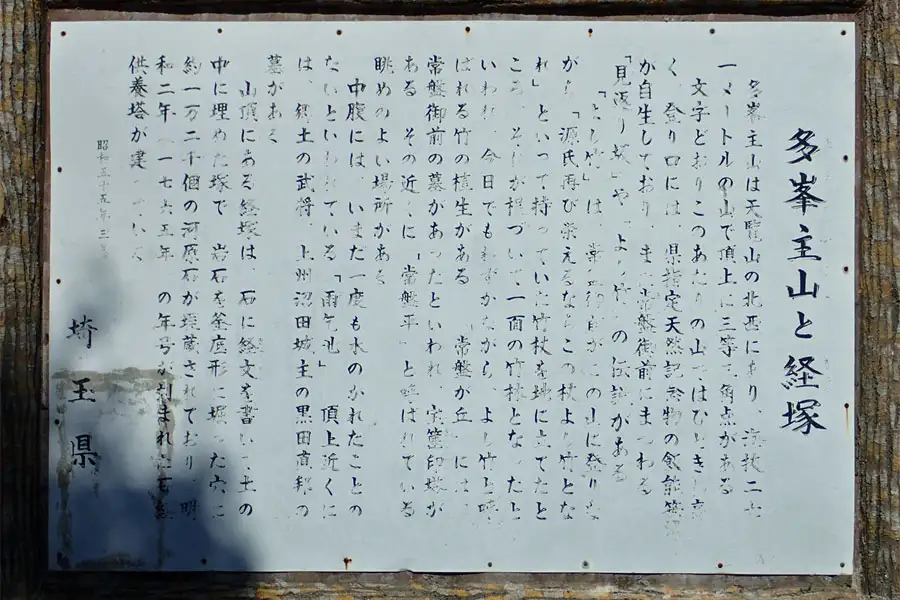 多峯主山と経塚
多峯主山は天覧山の北西にあり 海抜二七
一メートルの山で頂上に三等三角点がある
文字どおりこのあたりの山ではひときわ高
く、登り口には、県指定天然記念物の飯能笹
が自生しており、また常盤御前にまつわる
「見返り坂」や よし竹 の伝説がある
「よし竹」は、常盤御前がこの山に登りな
がら「源氏再び栄えるならこの杖よし竹とな
れ」といって持っていた竹杖を地に立てたと
ころ、それが根づいて一面の竹林となったと
いわれ、今日でもわずかながら、よし竹と呼
ばれる竹の植生がある 常盤が丘 には
常盤御前の墓があったといわれ、宝篋印塔が
ある その近くに「常盤平」と呼ばれている
眺めのよい場所がある
中腹には、いまだ一度も水のかれたことの
ないといわれている「雨乞池」 頂上近くに
は、郷土の武将、上州沼田城主の黒田直邦の
墓がある
山頂にある経塚は、石に経文を書いて土の
中に埋めた塚で 岩石を釜底形に掘った穴に
約一万二千個の河原石が埋蔵されており、明
和二年 一七六五年 の年号が刻まれた石経
供養塔が建っている
昭和五十五年三月
埼玉県